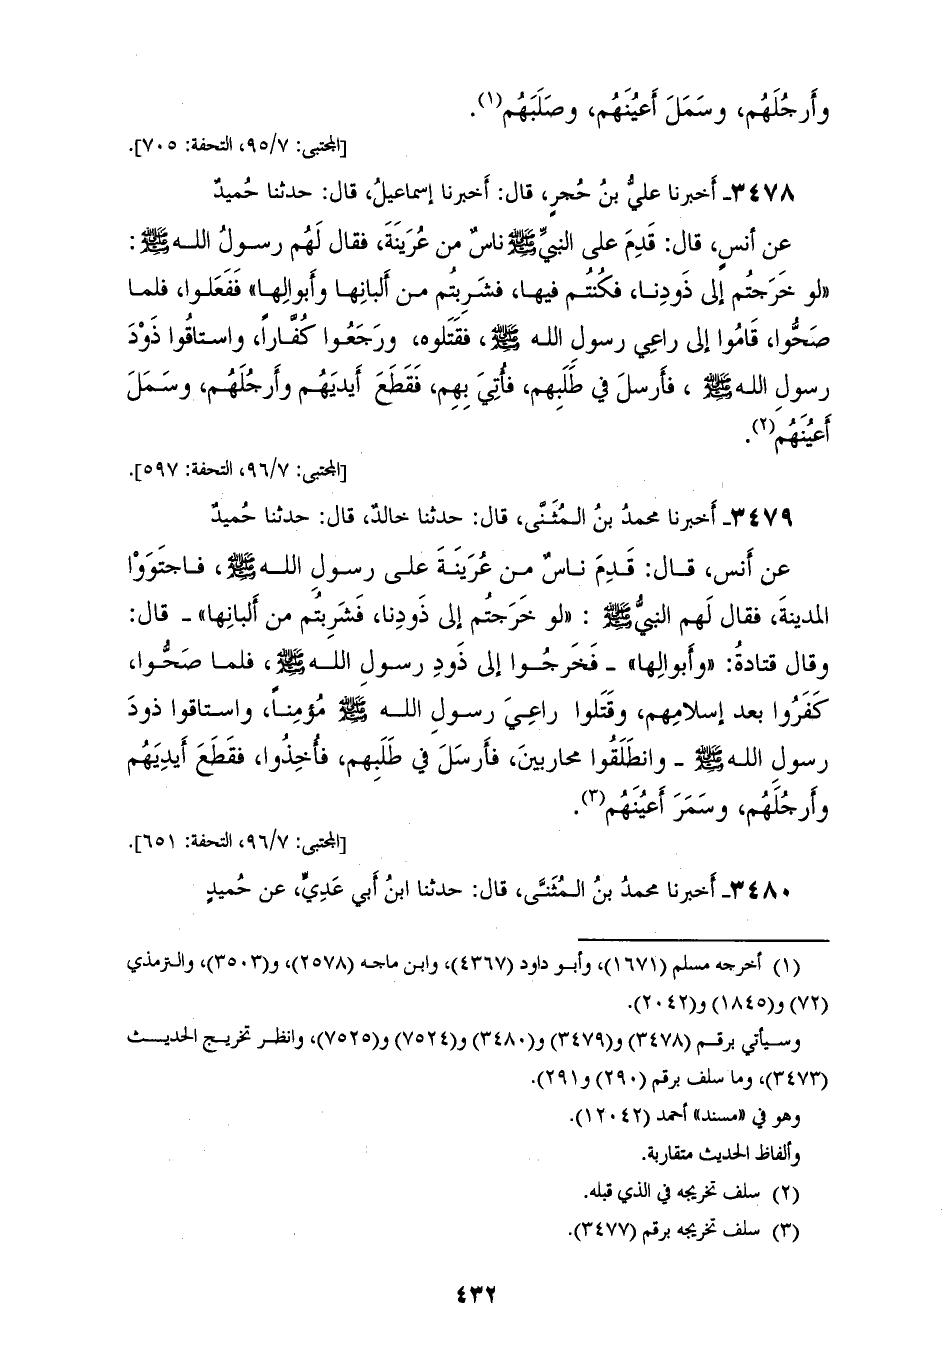 وأَرجُلَهُم، وسَمَلَ أَعيُنَهُم، وصَلَبَهُم(١).
[المجتبى: ٩٥/٧، التحفة: ٧٠٥].
٣٤٧٨ـ أَخبرنا عليُّ بنُ حُجرٍ، قال: أَخبرنا إسماعيلُ، قال: حدثنا حُميدٌ
عن أنسٍ، قال: قَدِمَ على النبيِّ ﷺ ناسٌ من عُرَينَةَ، فقال لَهُم رسولُ اللـه ﷺ :
«لو خَرَجتُم إلى ذَودِنـا، فكُنتُـم فيهـا، فشَرِبتُم مـن أَلبانِهـا وأَبوالِهـا» فَفَعَلـوا، فلمـا
صَحُّوا، قَامُوا إلى راعِي رسول اللـه ﷺ ، فقَتَلوه، ورَجَعُـوا كُفَّـاراً، واستاقُوا ذَوْدَ
رسولِ اللـه ﷺ ، فأَرسلَ في طَلَبِهم، فأُتِيَ بِهِم، فَقَطَعَ أَيديَهُـم وأَرجُلَهُـم، وسَمَـلَ
أَعيُنَهُم(٢).
[المجتبى: ٩٦/٧، التحفة: ٥٩٧].
٣٤٧٩ـ أَخبرنا محمدُ بنُ الـمُثَنَّى، قال: حدثنا خالدٌ، قال: حدثنا حُميدٌ
عن أَنس، قـال: قَـدِمَ نـاسٌ مـن عُرَينَـةَ علـى رسـولِ اللـه ﷺ ، فـاجتَوَوْا
المدينةَ، فقال لَهم النبيُّ ﷺ : «لو خَرَجتُم إلى ذَودِنا، فَشَرِبتُم من أَلبانِها» ـ قال:
وقال قتادةُ: «وأَبوالِها» ـ فَخَرجُـوا إلى ذَودِ رسـولِ اللـه ﷺ ، فلمـا صَحُّـوا،
كَفَرُوا بعد إسلامِهم، وقَتَلوا راعِيَ رسولِ اللـه ﷺ مُؤمِنـاً، واستاقوا ذودَ
رسولِ اللـه ﷺ ـ وانطَلَقُوا محاربينَ، فأَرسَلَ في طَلَبِهم، فأُخِذُوا، فقَطَعَ أَيدِيَهُم
وأَرجُلَهُم، وسَمَرَ أَعيُنَهُم(٣).
[المجتبى: ٩٦/٧، التحفة: ٦٥١].
٣٤٨٠ـ أَخبرنا محمدُ بنُ الـمُثنَى، قال: حدثنا ابنُ أَبي عَدِيٍّ، عن حُميدٍ
(١) أخرجه مسلم (١٦٧١)، وأبـو داود (٤٣٦٧)، وابن ماجـه (٢٥٧٨)، و(٣٥٠٣)، والـترمذي
(٧٢) و(١٨٤٥) و(٢٠٤٢).
وسـيأتي برقـم (٣٤٧٨) و(٣٤٧٩) و(٣٤٨٠) و(٧٥٢٤) و(٧٥٢٥)، وانظـر تخريـج الحديـث
(٣٤٧٣)، وما سلف برقم (٢٩٠) و(٢٩١).
وهو في «مسند» أحمد (١٢٠٤٢).
وألفاظ الحديث متقاربة.
(٢) سلف تخريجه في الذي قبله.
(٣) سلف تخريجه برقم (٣٤٧٧).
٤٣٢